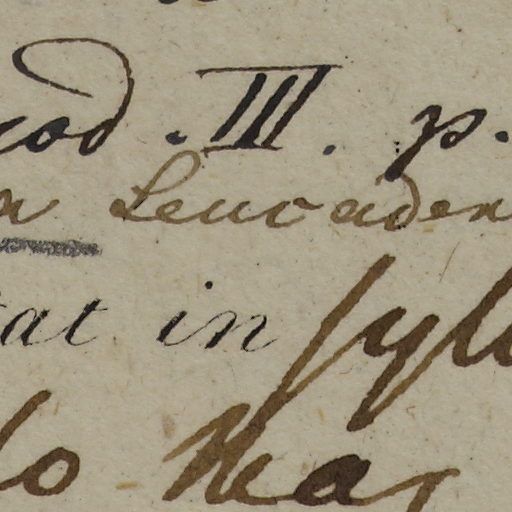 cod. III. p.
a Leucaden
tat in syl
lo Mar